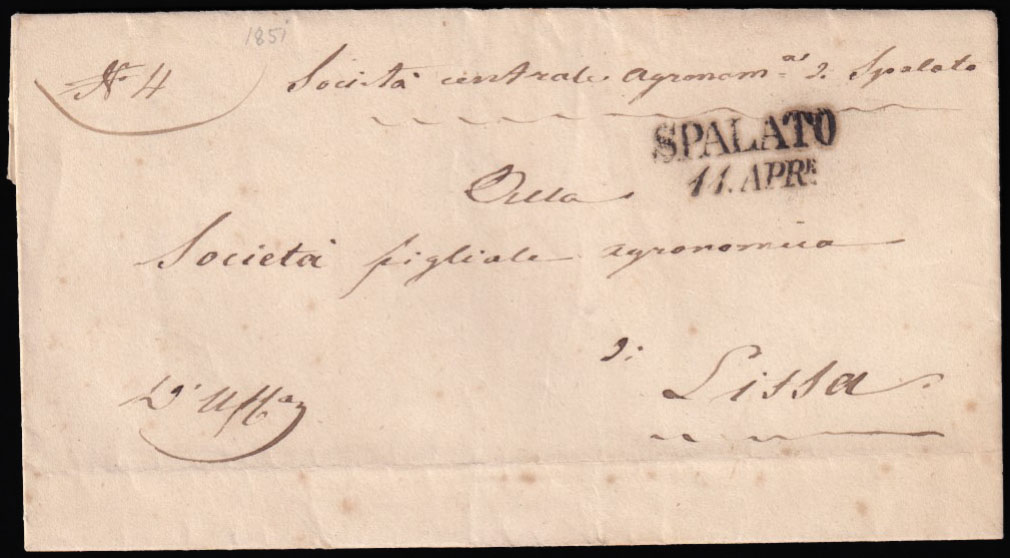 1851
N.º 4 Società centrale agronom.ª di Spalato
SPALATO
11. APR.E
Alla
Società figliale agronomica
di
Lissa
D'Uff.º